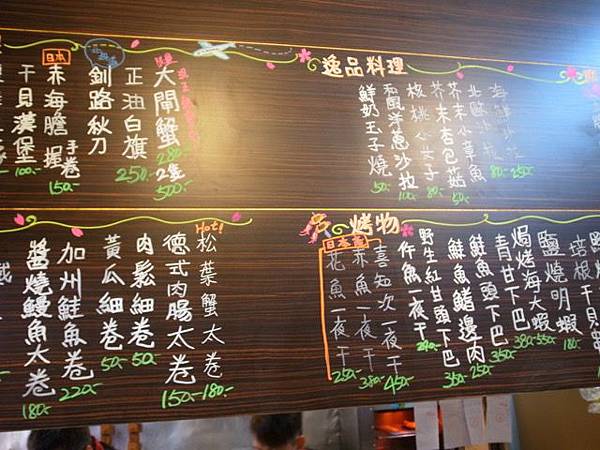 逸品料理
海鮮沙拉 250-
北歐沙拉 80-
芥末小章魚
芥末杏包菇 50-
核桃小女子 80-
和風洋蔥沙拉 100-
鮮奶玉子燒 50-
大閘蟹 280- 2隻 500-
正油白旗 250-
釧路秋刀
日本
赤海膽 握 手卷 150-
干貝漢堡 100-
烤物
鹽燒明蝦 180-
焗烤海大蝦 380- 550-
青甘下巴 350-
鮭魚頭下巴
鮭魚鰭邊肉 250-
野生紅甘下巴 350-
竹魚一夜干 290-
喜知次一夜干 450-
赤魚一夜干 380-
花魚一夜干 250-
Hot!
松葉蟹太卷 180-
德式肉腸太卷 150-
肉鬆細卷 50-
黃瓜細卷 50-
加州鮭魚卷 220-
醬燒鰻魚大卷 180-